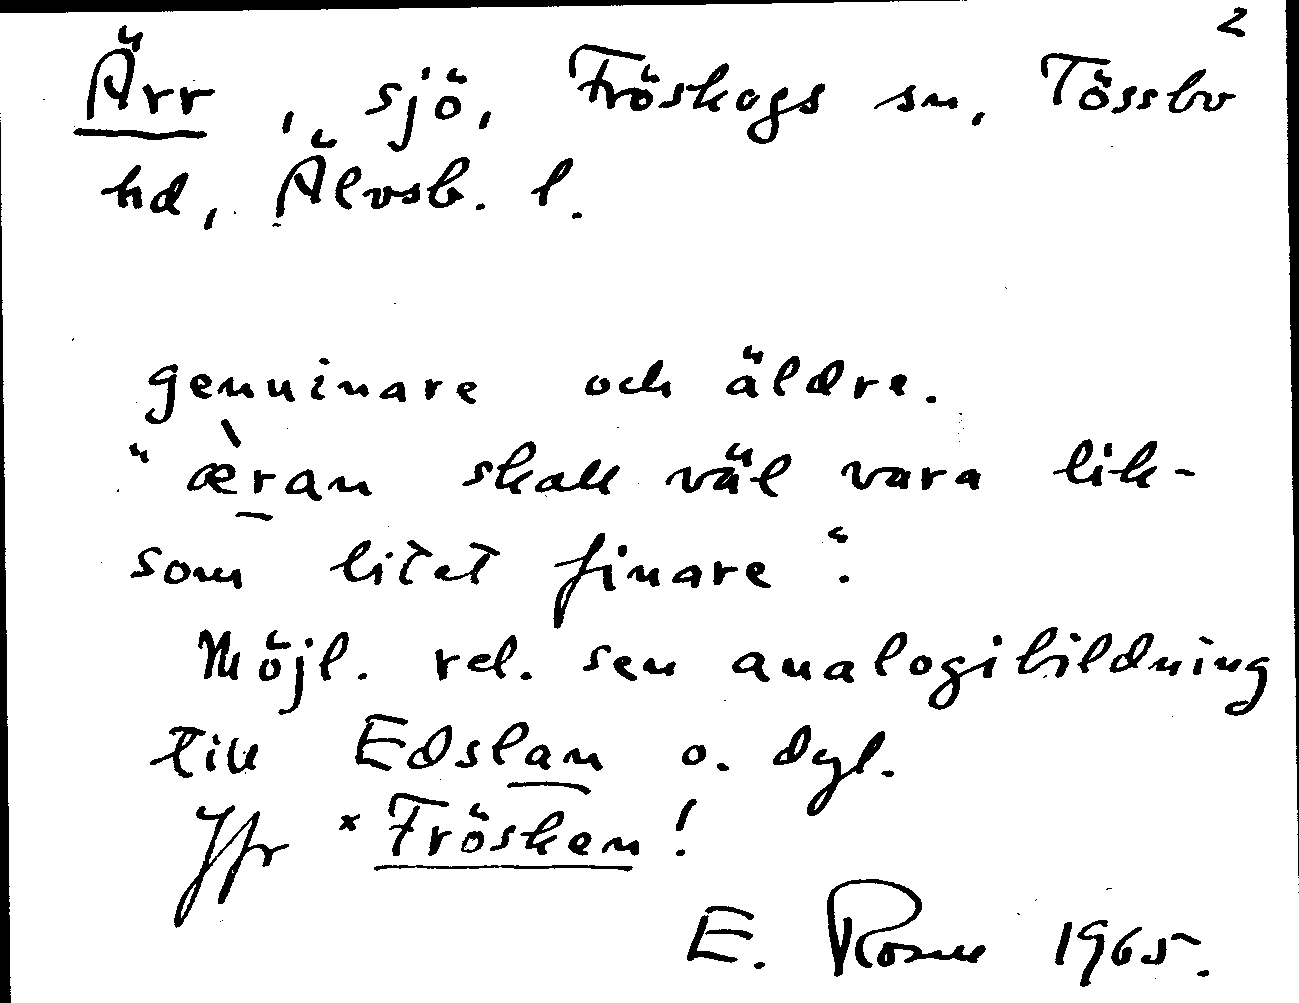 2
Ärr, sjö, Fröskogs sn, Tössbo
hd, Älvsb. l.
genuinare och äldre.
"æ̀ran skall väl vara lik-
som litet finare".
Möjl. rel. sen analogibildning
till Edslan o. dyl.
Jfr *Frösken!
E. Rosne 1965.